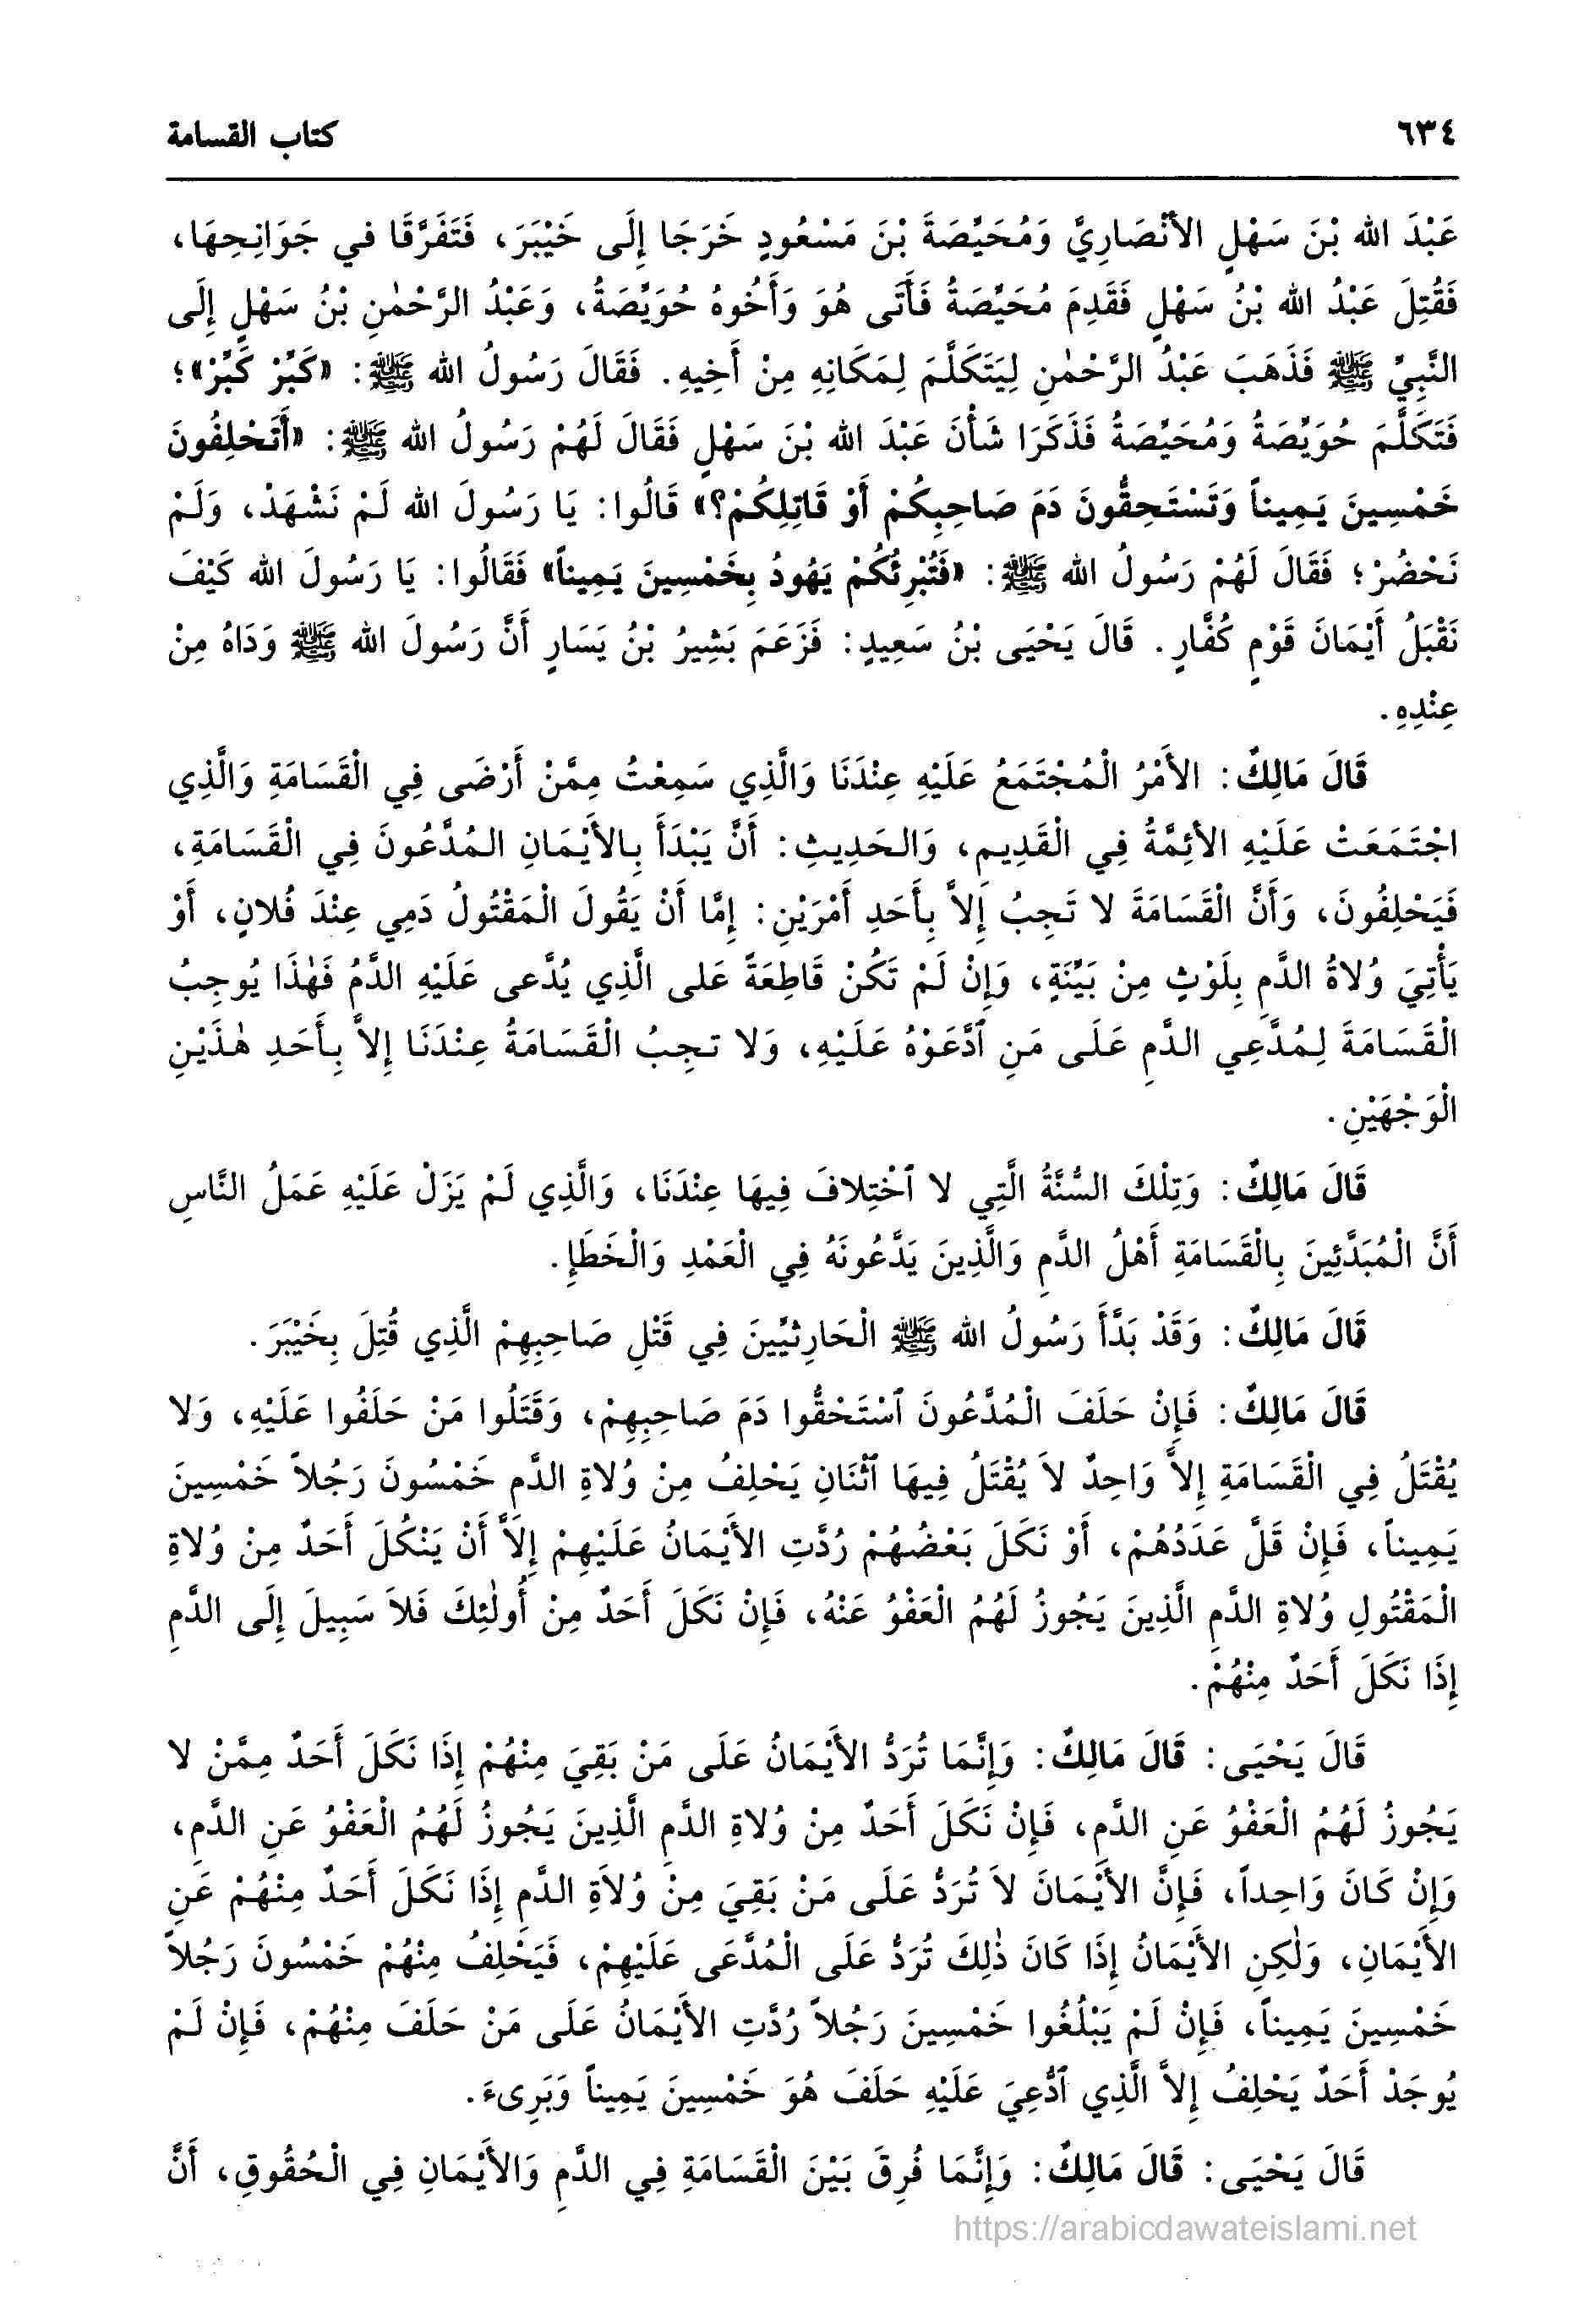 ٦٣٤ كتاب القسامة
عَبْدَ الله بْنَ سَهْلٍ الأَنْصَارِيَّ وَمُحَيِّصَةَ بْنَ مَسْعُودٍ خَرَجَا إِلَى خَيْبَرَ، فَتَفَرَّقَا في جَوَانِحِهَا،
فَقُتِلَ عَبْدُ الله بْنُ سَهْلٍ فَقَدِمَ مُحَيِّصَةُ فَأَتَى هُوَ وَأَخُوهُ حُوَيِّصَةُ، وَعَبْدُ الرَّحْمٰنِ بْنُ سَهْلٍ إِلَى
النَّبِيِّ ﷺ فَذَهَبَ عَبْدُ الرَّحْمٰنِ لِيَتَكَلَّمَ لِمَكَانِهِ مِنْ أَخِيهِ. فَقَالَ رَسُولُ الله ﷺ: «كَبِّرْ كَبِّرْ»؛
فَتَكَلَّمَ حُوَيِّصَةُ وَمُحَيِّصَةُ فَذَكَرَا شَأْنَ عَبْدَ الله بْنَ سَهْلٍ فَقَالَ لَهُمْ رَسُولُ الله ﷺ: «أَتَحْلِفُونَ
خَمْسِينَ يَمِيناً وَتَسْتَحِقُّونَ دَمَ صَاحِبِكُمْ أَوْ قَاتِلِكُمْ؟» قَالُوا: يَا رَسُولَ الله لَمْ نَشْهَدْ، وَلَمْ
نَحْضُرْ؛ فَقَالَ لَهُمْ رَسُولُ الله ﷺ: «فَتُبْرِئُكُمْ يَهُودُ بِخَمْسِينَ يَمِيناً» فَقَالُوا: يَا رَسُولَ الله كَيْفَ
نَقْبَلُ أَيْمَانَ قَوْمٍ كُفَّارٍ. قَالَ يَحْيَى بْنُ سَعِيدٍ: فَزَعَمَ بَشِيرُ بْنُ يَسَارٍ أَنَّ رَسُولَ الله ﷺ وَدَاهُ مِنْ
عِنْدِهِ.
قَالَ مَالِكٌ: الأَمْرُ الْمُجْتَمَعُ عَلَيْهِ عِنْدَنَا وَالَّذِي سَمِعْتُ مِمَّنْ أَرْضَى فِي الْقَسَامَةِ وَالَّذِي
اجْتَمَعَتْ عَلَيْهِ الأَئِمَّةُ فِي الْقَدِيمِ، وَالحَدِيثِ: أَنَّ يَبْدَأَ بِالأَيْمَانِ المُدَّعُونَ فِي الْقَسَامَةِ،
فَيَحْلِفُونَ، وَأَنَّ الْقَسَامَةَ لا تَجِبُ إِلاَّ بِأَحَدِ أَمْرَيْنِ: إِمَّا أَنْ يَقُولَ الْمَقْتُولُ دَمِي عِنْدَ فُلانٍ، أَوْ
يَأْتِيَ وُلاةُ الدَّمِ بِلَوْثٍ مِنْ بَيِّنَةٍ، وَإِنْ لَمْ تَكُنْ قَاطِعَةً عَلى الَّذِي يُدَّعى عَلَيْهِ الدَّمُ فَهٰذَا يُوجِبُ
الْقَسَامَةَ لِمُدَّعِي الدَّمِ عَلَى مَنِ ٱدَّعَوْهُ عَلَيْهِ، وَلا تجِبُ الْقَسَامَةُ عِنْدَنَا إِلاَّ بِأَحَدِ هٰذَيْنِ
الْوَجْهَيْنِ.
قَالَ مَالِكٌ: وَتِلْكَ السُّنَّةُ الَّتِي لا ٱخْتِلافَ فِيهَا عِنْدَنَا، وَالَّذِي لَمْ يَزَلْ عَلَيْهِ عَمَلُ النَّاسِ
أَنَّ الْمُبَدَّئِينَ بِالْقَسَامَةِ أَهْلُ الدَّمِ وَالَّذِينَ يَدَّعُونَهُ فِي الْعَمْدِ وَالْخَطَإِ.
قَالَ مَالِكٌ: وَقَدْ بَدَّأَ رَسُولُ الله ﷺ الْحَارِثِيِّينَ فِي قَتْلِ صَاحِبِهِمْ الَّذِي قُتِلَ بِخَيْبَرَ.
قَالَ مَالِكٌ: فَإِنْ حَلَفَ الْمُدَّعُونَ ٱسْتَحْقُّوا دَمَ صَاحِبِهِمْ، وَقَتَلُوا مَنْ حَلَفُوا عَلَيْهِ، وَلا
يُقْتَلُ فِي الْقَسَامَةِ إِلاَّ وَاحِدٌ لاَ يُقْتَلُ فِيهَا ٱثْنَانِ يَحْلِفُ مِنْ وُلاةِ الدَّمِ خَمْسُونَ رَجُلاً خَمْسِينَ
يَمِيناً، فَإِنْ قَلَّ عَدَدُهُمْ، أَوْ نَكَلَ بَعْضُهُمْ رُدَّتِ الأَيْمَانُ عَلَيْهِمْ إِلاَّ أَنْ يَنْكُلَ أَحَدٌ مِنْ وُلاةِ
الْمَقْتُولِ وُلاةِ الدَّمِ الَّذِينَ يَجُوزُ لَهُمُ الْعَفْوُ عَنْهُ، فَإِنْ نَكَلَ أَحَدٌ مِنْ أُولٰئِكَ فَلاَ سَبِيلَ إِلَى الدَّمِ
إِذَا نَكَلَ أَحَدٌ مِنْهُمْ.
قَالَ يَحْيَى: قَالَ مَالِكٌ: وَإِنَّمَا تُرَدُّ الأَيْمَانُ عَلَى مَنْ بَقِيَ مِنْهُمْ إِذَا نَكَلَ أَحَدٌ مِمَّنْ لا
يَجُوزُ لَهُمُ الْعَفْوُ عَنِ الدَّمِ، فَإِنْ نَكَلَ أَحَدٌ مِنْ وُلاةِ الدَّمِ الَّذِينَ يَجُوزُ لَهُمُ الْعَفْوُ عَنِ الدَّمِ،
وَإِنْ كَانَ وَاحِداً، فَإِنَّ الأَيْمَانَ لاَ تُرَدُّ عَلَى مَنْ بَقِيَ مِنْ وُلاَةِ الدَّمِ إِذَا نَكَلَ أَحَدٌ مِنْهُمْ عَنِ
الأَيْمَانِ، وَلٰكِنِ الأَيْمَانُ إِذَا كَانَ ذٰلِكَ تُرَدُّ عَلَى الْمُدَّعَى عَلَيْهِمْ، فَيَحْلِفُ مِنْهُمْ خَمْسُونَ رَجُلاً
خَمْسِينَ يَمِيناً، فَإِنْ لَمْ يَبْلُغُوا خَمْسِينَ رَجُلاً رُدَّتِ الأَيْمَانُ عَلَى مَنْ حَلَفَ مِنْهُمْ، فَإِنْ لَمْ
يُوجَدْ أَحَدٌ يَحْلِفُ إِلاَّ الَّذِي ٱدُّعِيَ عَلَيْهِ حَلَفَ هُوَ خَمْسِينَ يَمِيناً وَبَرِىءَ.
قَالَ يَحْيَى: قَالَ مَالِكٌ: وَإِنَّمَا فُرِقَ بَيْنَ الْقَسَامَةِ فِي الدَّمِ وَالأَيْمَانِ فِي الْحُقُوقِ، أَنَّ
https://arabicdawateislami.net